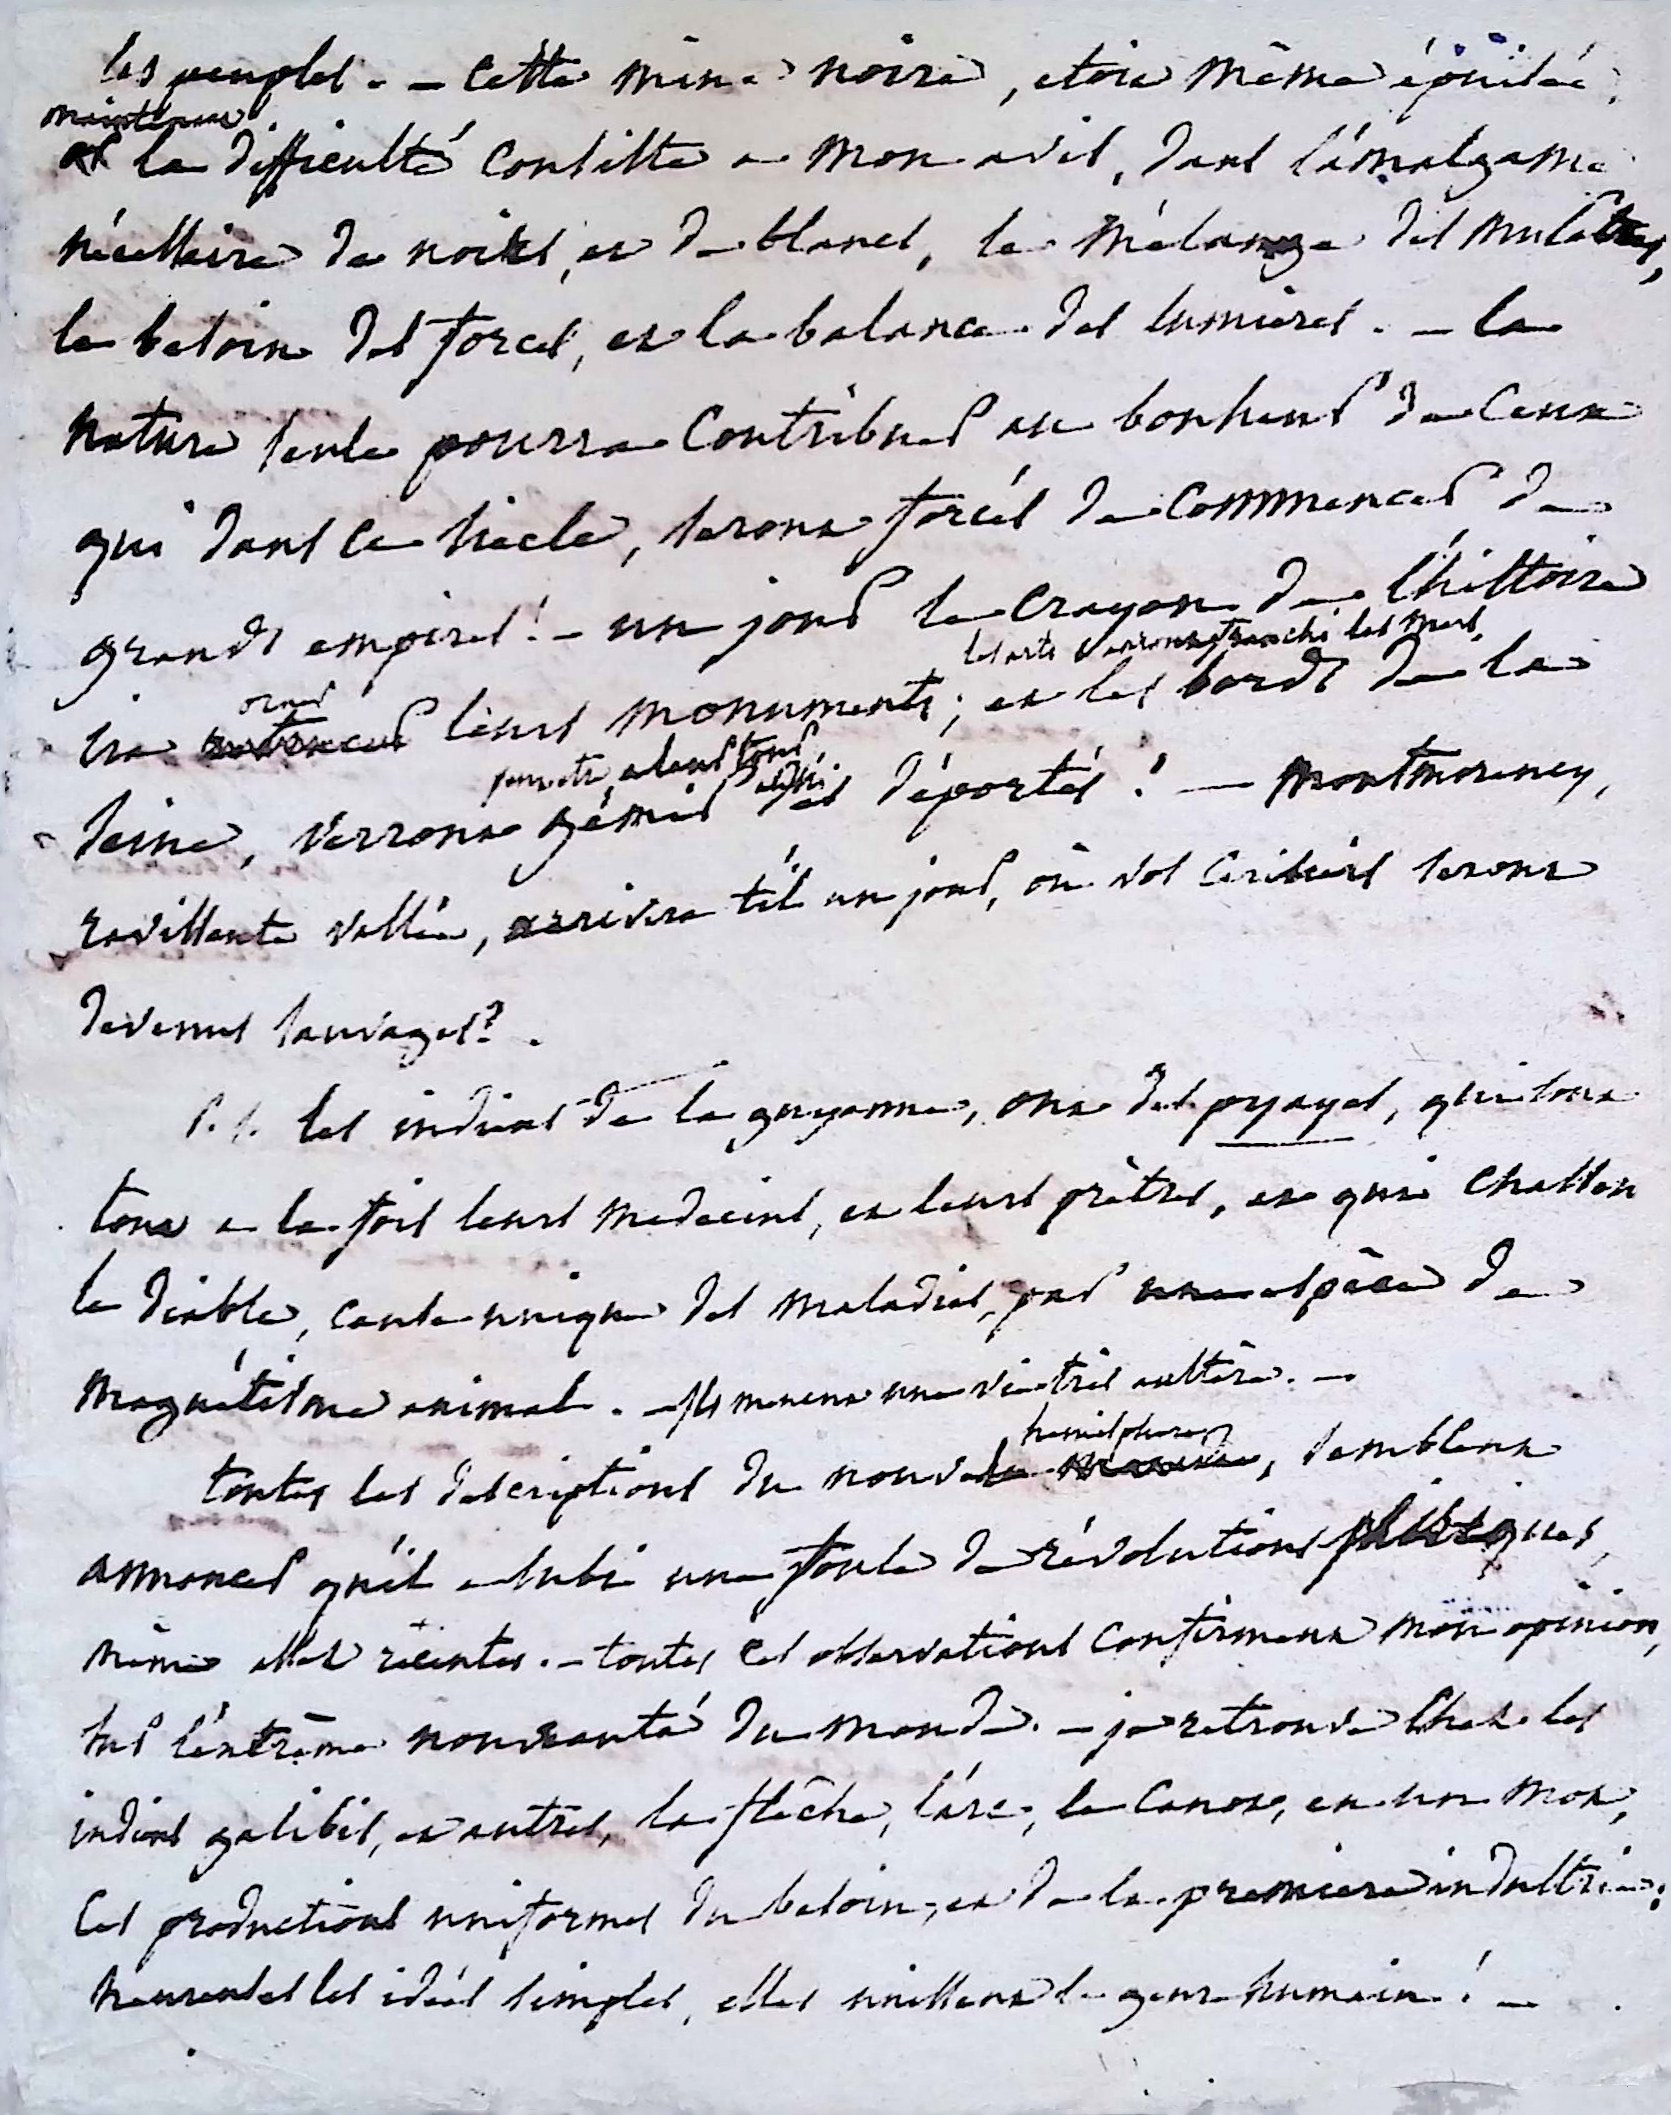 les peuples. — cette mine noire, etoit même épuisée,
maintenant
et la difficulté consiste a mon avis, dans l'amalgame
nécessaire de noirs, et de blancs, le mélange des mulâtres,
le besoin des forces, et la balance des lumières. — la
nature seule pourra contribuer au bonheur de ceux
qui dans ce siècle, seront forcés de commencer de
grands empires! — un jour le crayon de l'histoire
les arts auront franchi les mers,
orner
ira leurs monuments; et les bords de la
peutetre, a leur tour,
aussi
seine, verront gémir des déportés! — montmorency,
ravissante vallée, arrivera t'il un jour, où vos cerisiers seront
devenus sauvages?.
P. S. les indiens de la guyanne, ont des pyayes, qui sont
tout a la fois leurs medecins, et leurs prêtres, et qui chassent
le diable, cause unique des maladies, par une espèce de
magnétisme animal. — ils menent une vie très austère. —
hemisphere
toutes les descriptions du nouvel monde, semblent
annoncer qu'il a subi une foule de révolutions phisiques,
même assez récentes. — toutes ces observations confirment mon opinion,
sur l'extrême nouveauté du monde. — je retrouve chez les
indiens galibis, et autres, la flêche, l'arc, le canot, en un mot,
ces productions uniformes du besoin, et de la premiere industrie:
heureuses les idées simples, elles unissent le genre humain! —